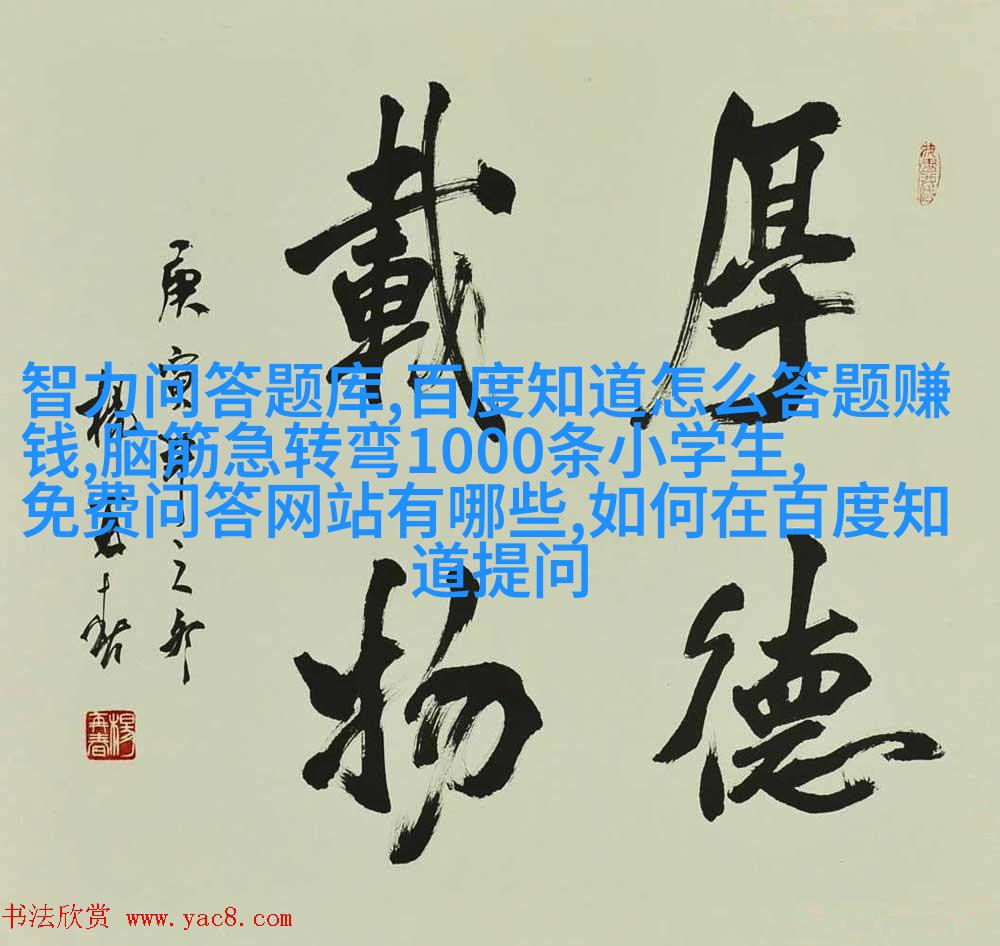 厚德
載物
庚寅年之
楊再春
楊再春
智力问答题库,百度知道怎么答题赚
钱,脑筋急转弯1000条小学生,
免费问答网站有哪些,如何在百度知
道提问
书法欣赏 www.yac8.com